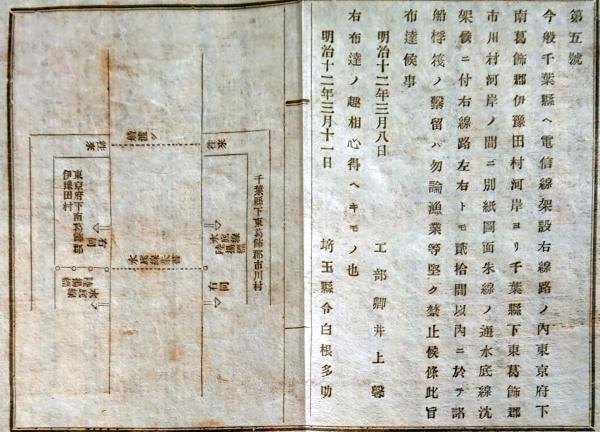 第五號
今般千葉縣ヘ電信線架設右線路ノ內東京府下
南葛飾郡伊豫田村河岸ヨリ千葉縣下東葛飾郡
市川村河岸ノ間ニ別紙圖面朱線ノ通水底線沈
架候ニ付右線路左右トモ貳拾間以內ニ於テ諸
船桴筏ノ繫留ハ勿論漁業等堅ク禁止候條此旨
布達候事
明治十二年三月八日
工部卿井上馨
右布達ノ趣相心得ヘキモノ也
明治十二年三月十一日
埼玉縣令白根多助
千葉縣下東葛飾郡市川村
往來
水底線
陸揚標
右同
水底線朱書
往來
右同
水底線
陸揚標
東京府下南葛飾郡
伊豫田村